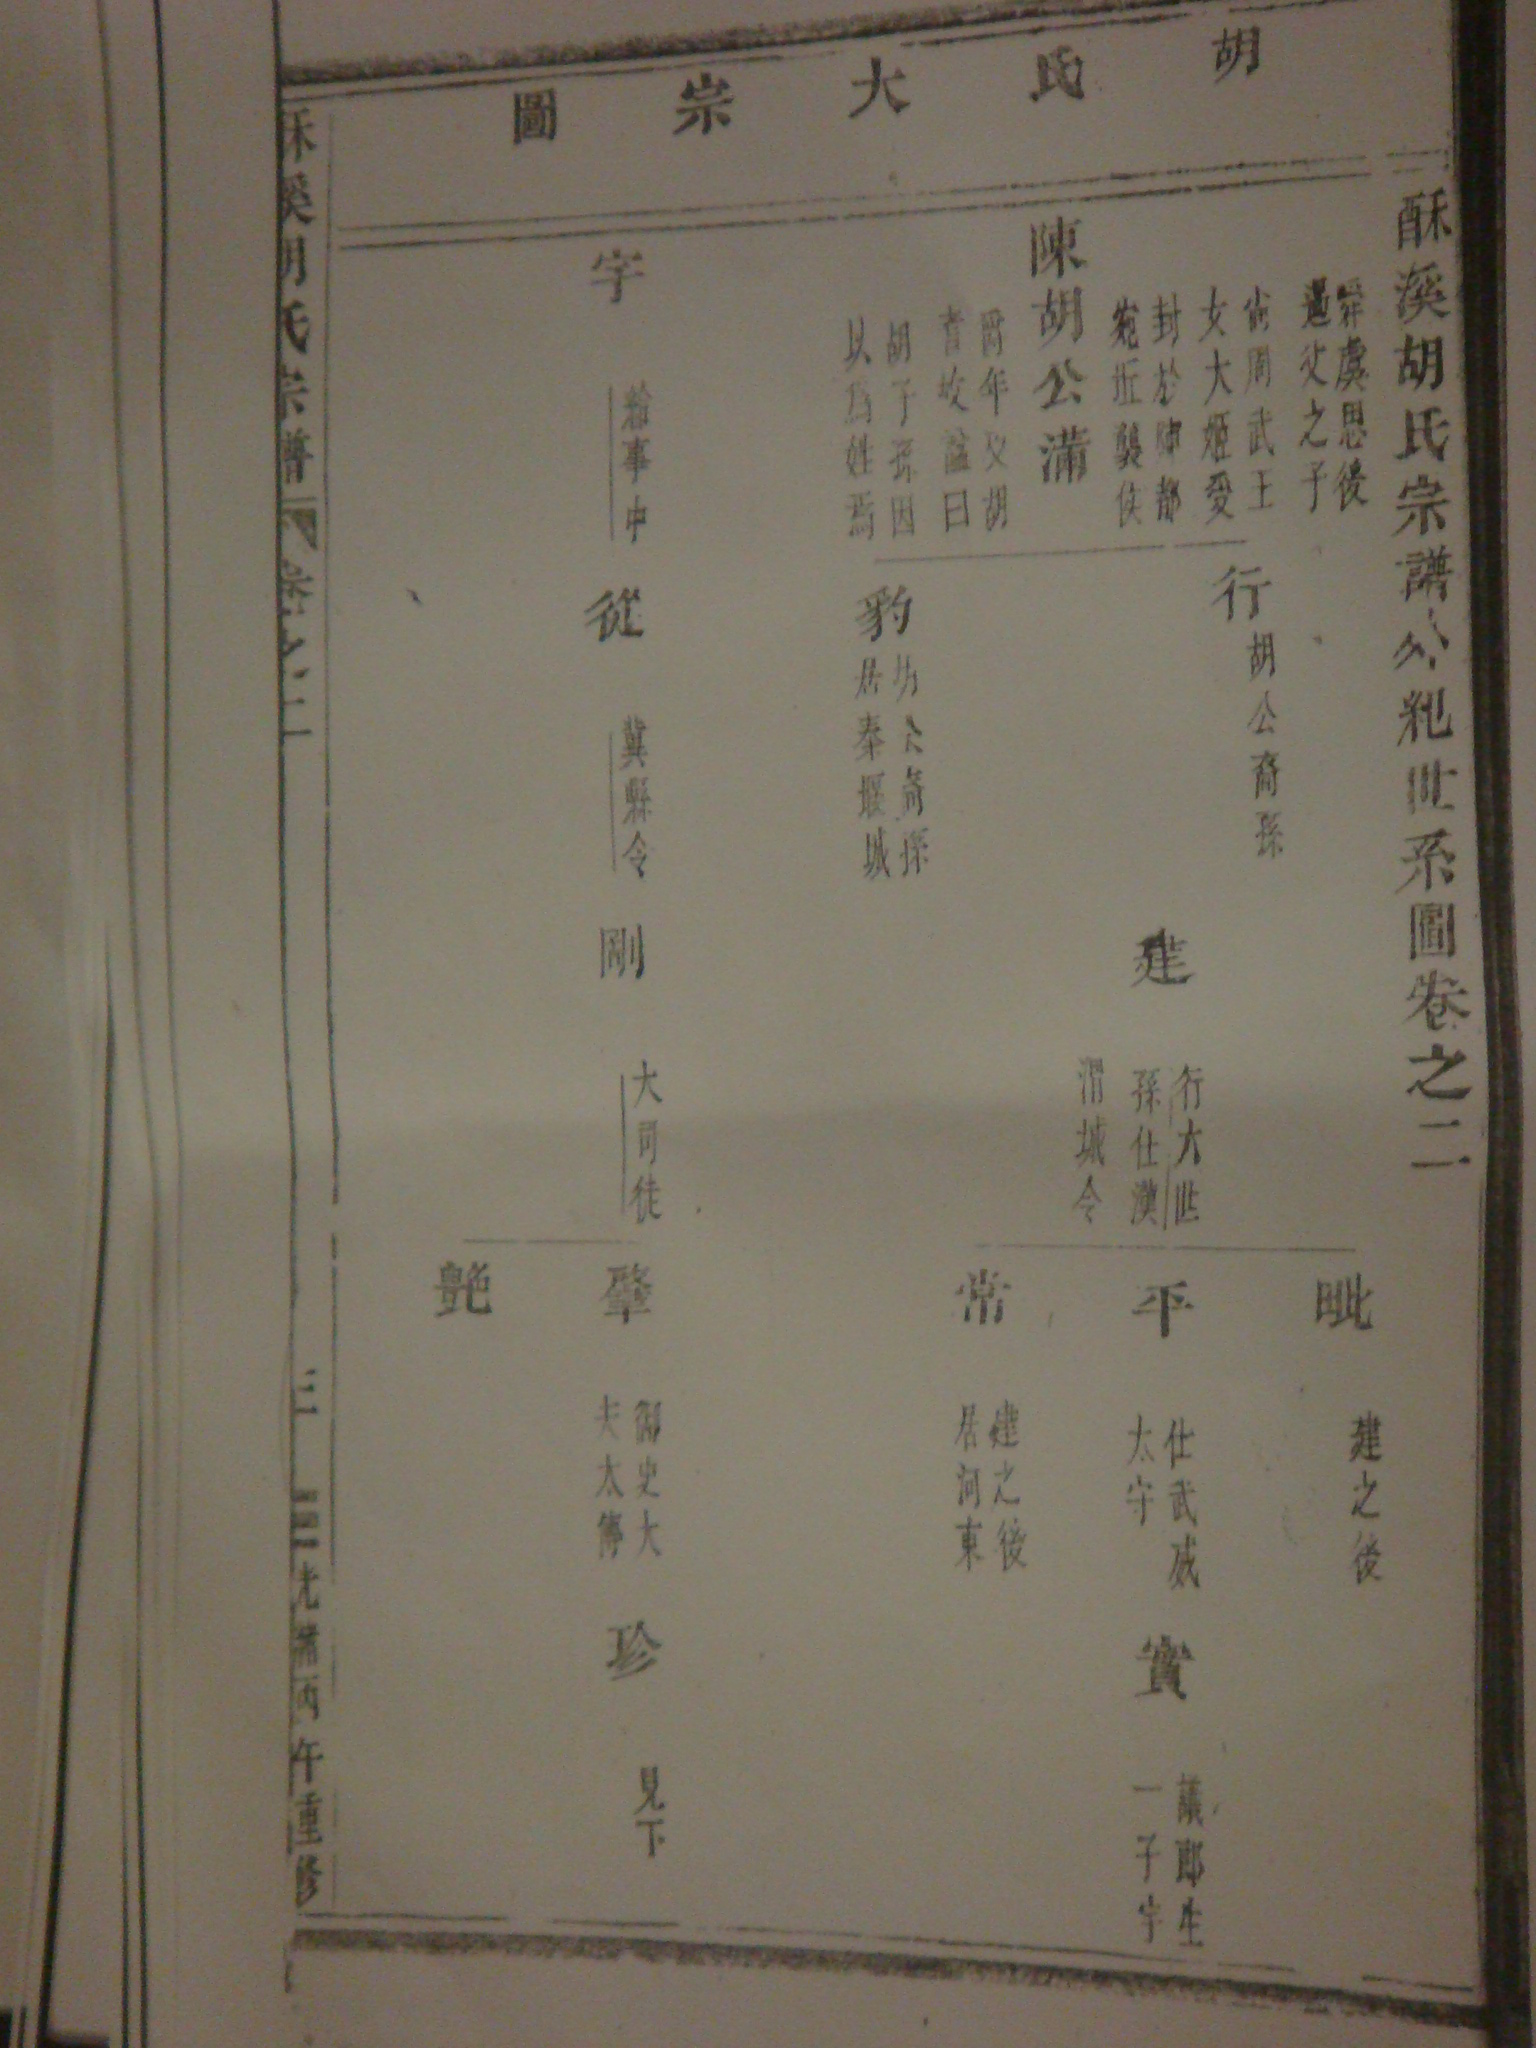 胡氏大宗圖
酥溪胡氏宗譜外紀世系圖卷之二
舜虞思後
遏父之子
尚周武王
女大姬受
封於陳都
宛丘襲侯
陳胡公滿
爾年又胡
耉故諡曰
胡子孫因
以為姓焉
行
胡公裔孫
建
行六世
孫仕漢
渭城令
毗
建之後
平
仕武威
太守
實
議郎生
一子宇
常
建之後
居河東
豹
居秦堰城
宇
給事中
從
冀縣令
剛
大司徒
肇
御史大
夫太傅
珍
見下
艶
酥溪胡氏宗譜
卷之二
三
光緒丙午重修